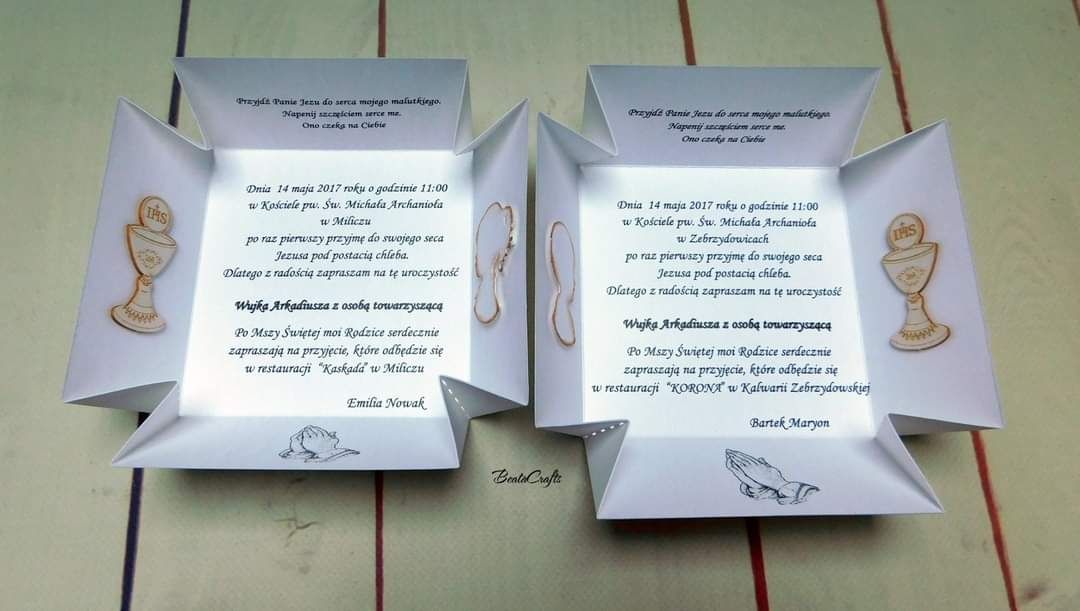 Przyjdź Panie Jezu do serca mojego malutkiego.
Napenij szczęściem serce me.
Ono czeka na Ciebie
Dnia 14 maja 2017 roku o godzinie 11:00
w Kościele pw. Św. Michała Archanioła
w Miliczu
po raz pierwszy przyjmę do swojego seca
Jezusa pod postacią chleba.
Dlatego z radością zapraszam na tę uroczystość
Wujka Arkadiusza z osobą towarzyszącą
Po Mszy Świętej moi Rodzice serdecznie
zapraszają na przyjęcie, które odbędzie się
w restauracji "Kaskada" w Miliczu
Emilia Nowak
IHS
Przyjdź Panie Jezu do serca mojego malutkiego.
Napenij szczęściem serce me.
Ono czeka na Ciebie
Dnia 14 maja 2017 roku o godzinie 11:00
w Kościele pw. Św. Michała Archanioła
w Zebrzydowicach
po raz pierwszy przyjmę do swojego seca
Jezusa pod postacią chleba.
Dlatego z radością zapraszam na tę uroczystość
Wujka Arkadiusza z osobą towarzyszącą
Po Mszy Świętej moi Rodzice serdecznie
zapraszają na przyjęcie, które odbędzie się
w restauracji "KORONA" w Kalwarii Zebrzydowskiej
Bartek Maryon
IHS
BeataCrafts